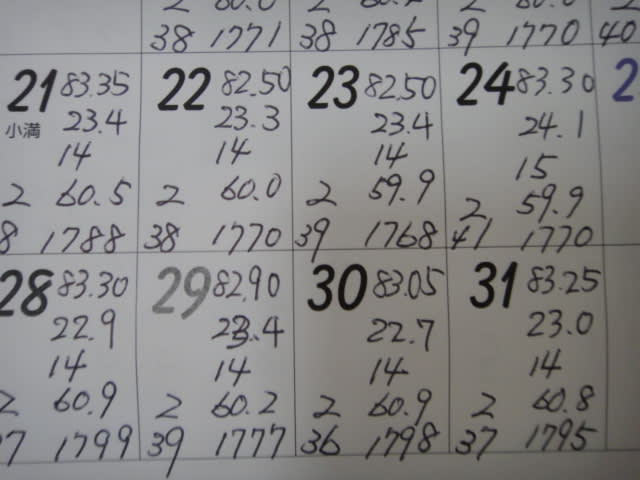 38 1771 38 1785 39 1770 40
21 83.35 22 82.50 23 82.50 24 83.30
小満 23.4 23.3 23.4 24.1
14 14 14 15
2 60.5 2 60.0 2 59.9 2 59.9
8 1788 38 1770 39 1768 41 1770
28 83.30 29 82.90 30 83.05 31 83.25
22.9 23.4 22.7 23.0
14 14 14 14
2 60.9 2 60.2 2 60.9 2 60.8
37 1799 39 1777 36 1798 37 1795